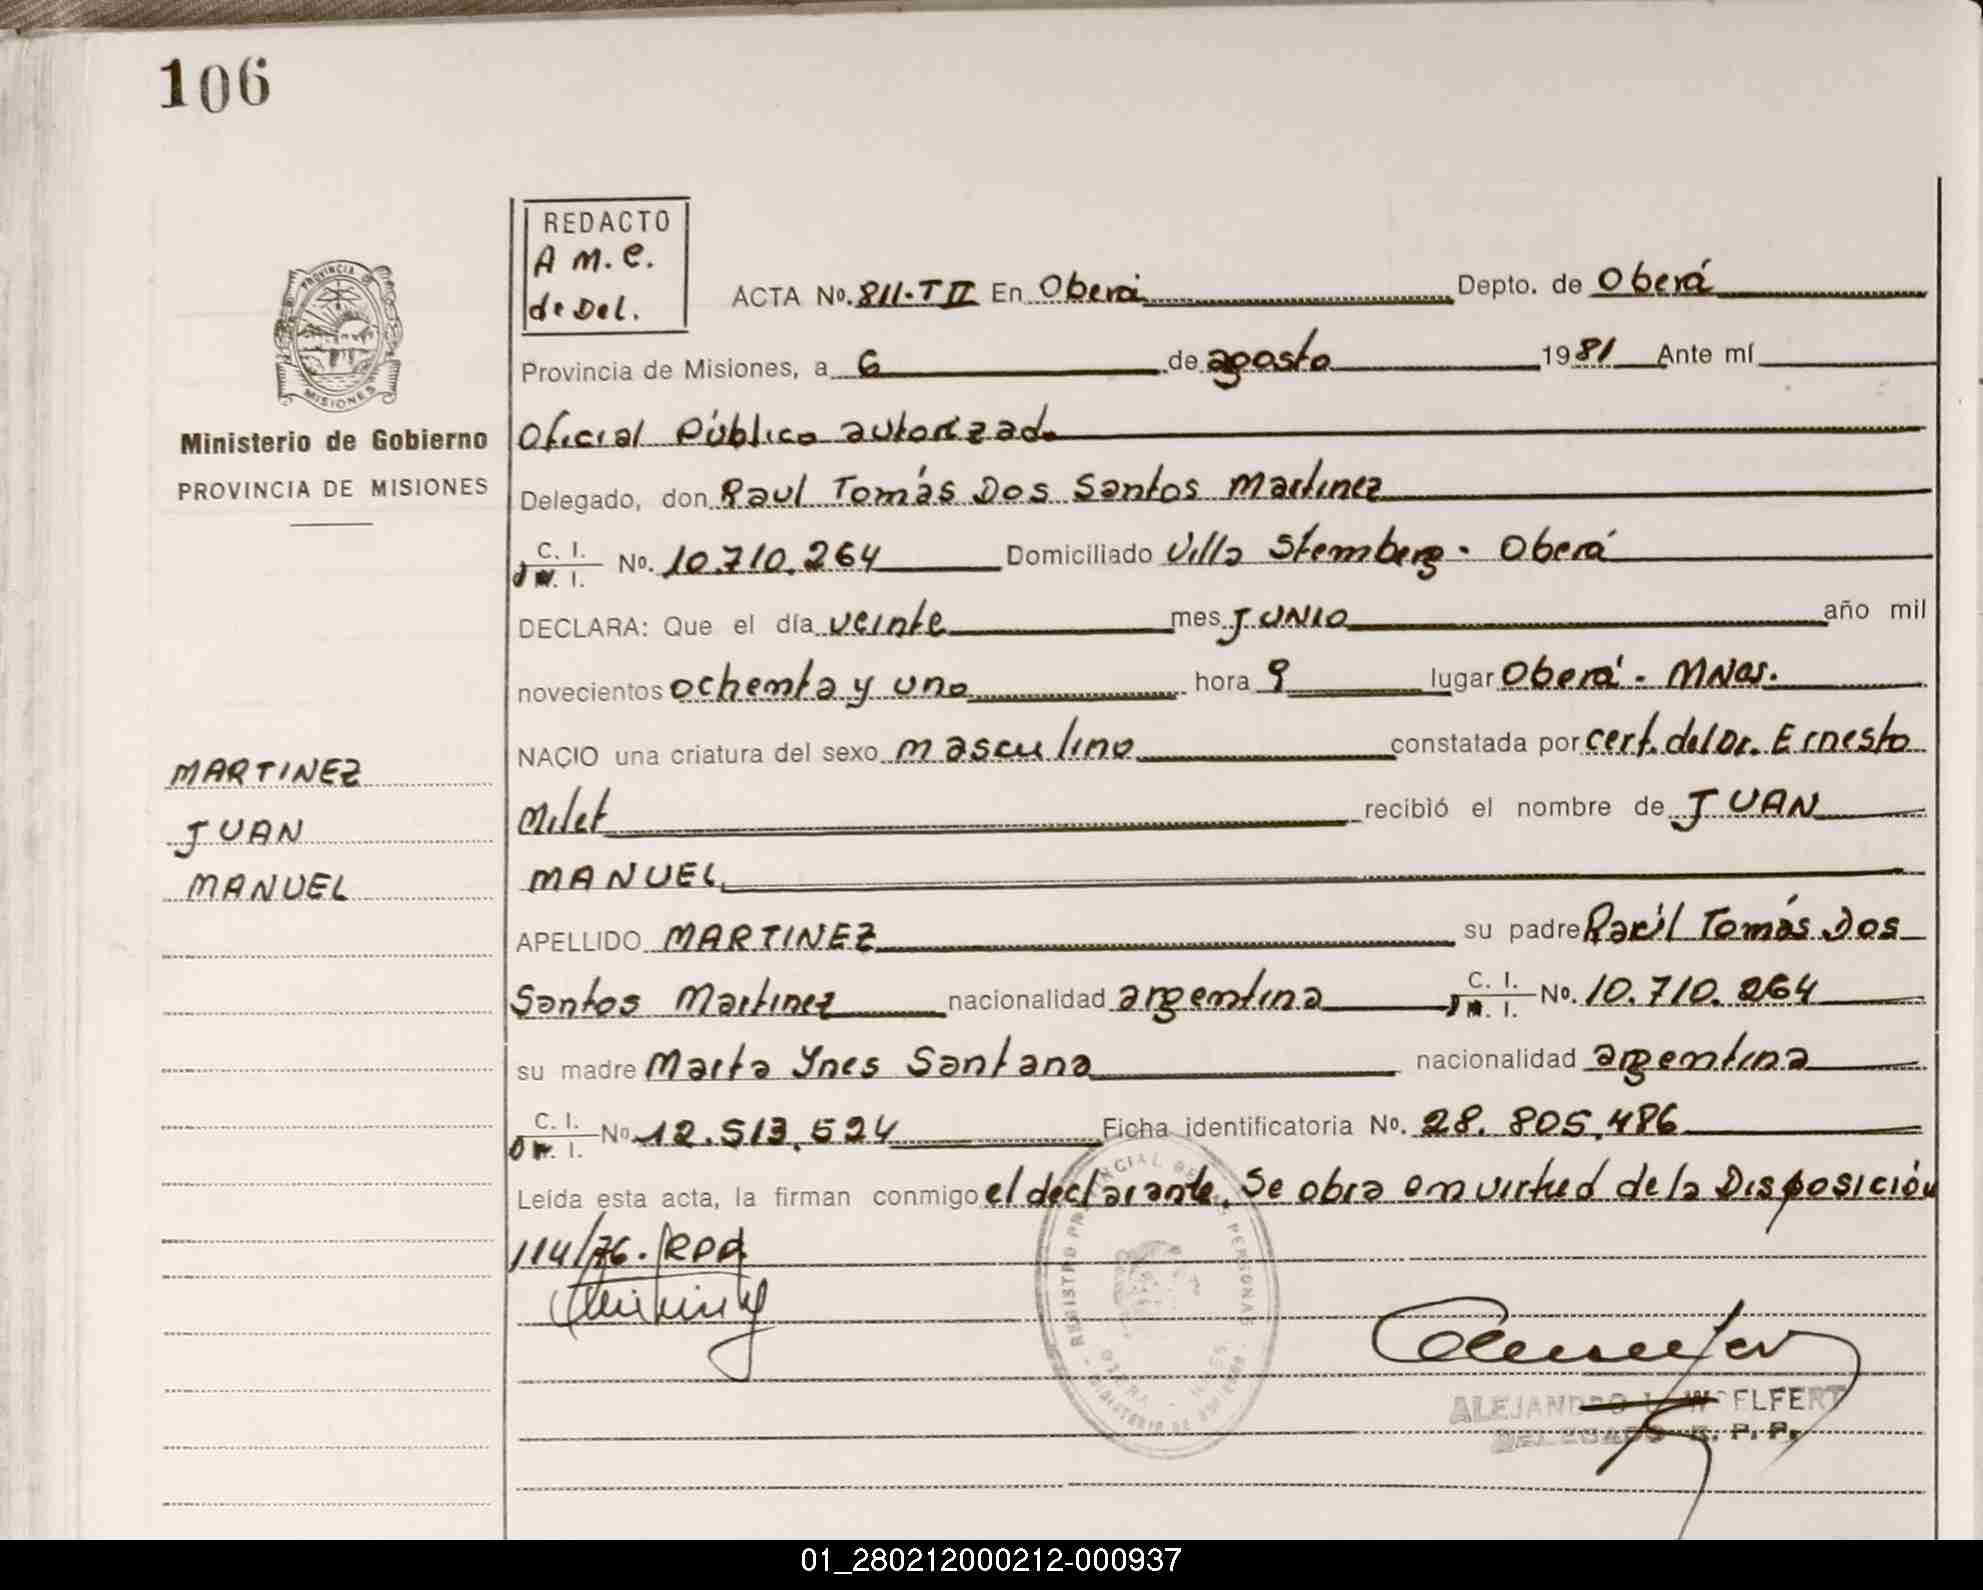 106
REDACTO
A M. e.
de Del.
ACTA No. 811-T II En Oberá Depto. de Oberá
PROVINCIA DE
MISIONES
Provincia de Misiones, a 6 de agosto 1981 Ante mí
Ministerio de Gobierno
PROVINCIA DE MISIONES
Oficial Público autorizado
Delegado, don Raul Tomás Dos Santos Martinez
C. I.
I. No. 10.710.264 Domiciliado Villa Stemberg - Oberá
DECLARA: Que el día veinte mes JUNIO año mil
novecientos ochenta y uno hora 9 lugar Oberá - MNes.
NACIO una criatura del sexo masculino constatada por cert. del Dr. Ernesto
MARTINEZ
Milet recibió el nombre de JUAN
JUAN
MANUEL
MANUEL
APELLIDO MARTINEZ su padre Raúl Tomás Dos
Santos Martinez nacionalidad argentina C. I.
I. No. 10.710.264
su madre Marta Ynes Santana nacionalidad argentina
C. I.
I. No 12.513.524 Ficha identificatoria No. 28.805.486
Leída esta acta, la firman conmigo el declarante. Se obra en virtud de la Disposición
114/76. RPP.
REGISTRO DE PERSONAS
ALEJANDRO WOELFERT
DELEGADO R. P. P.
01_280212000212-000937